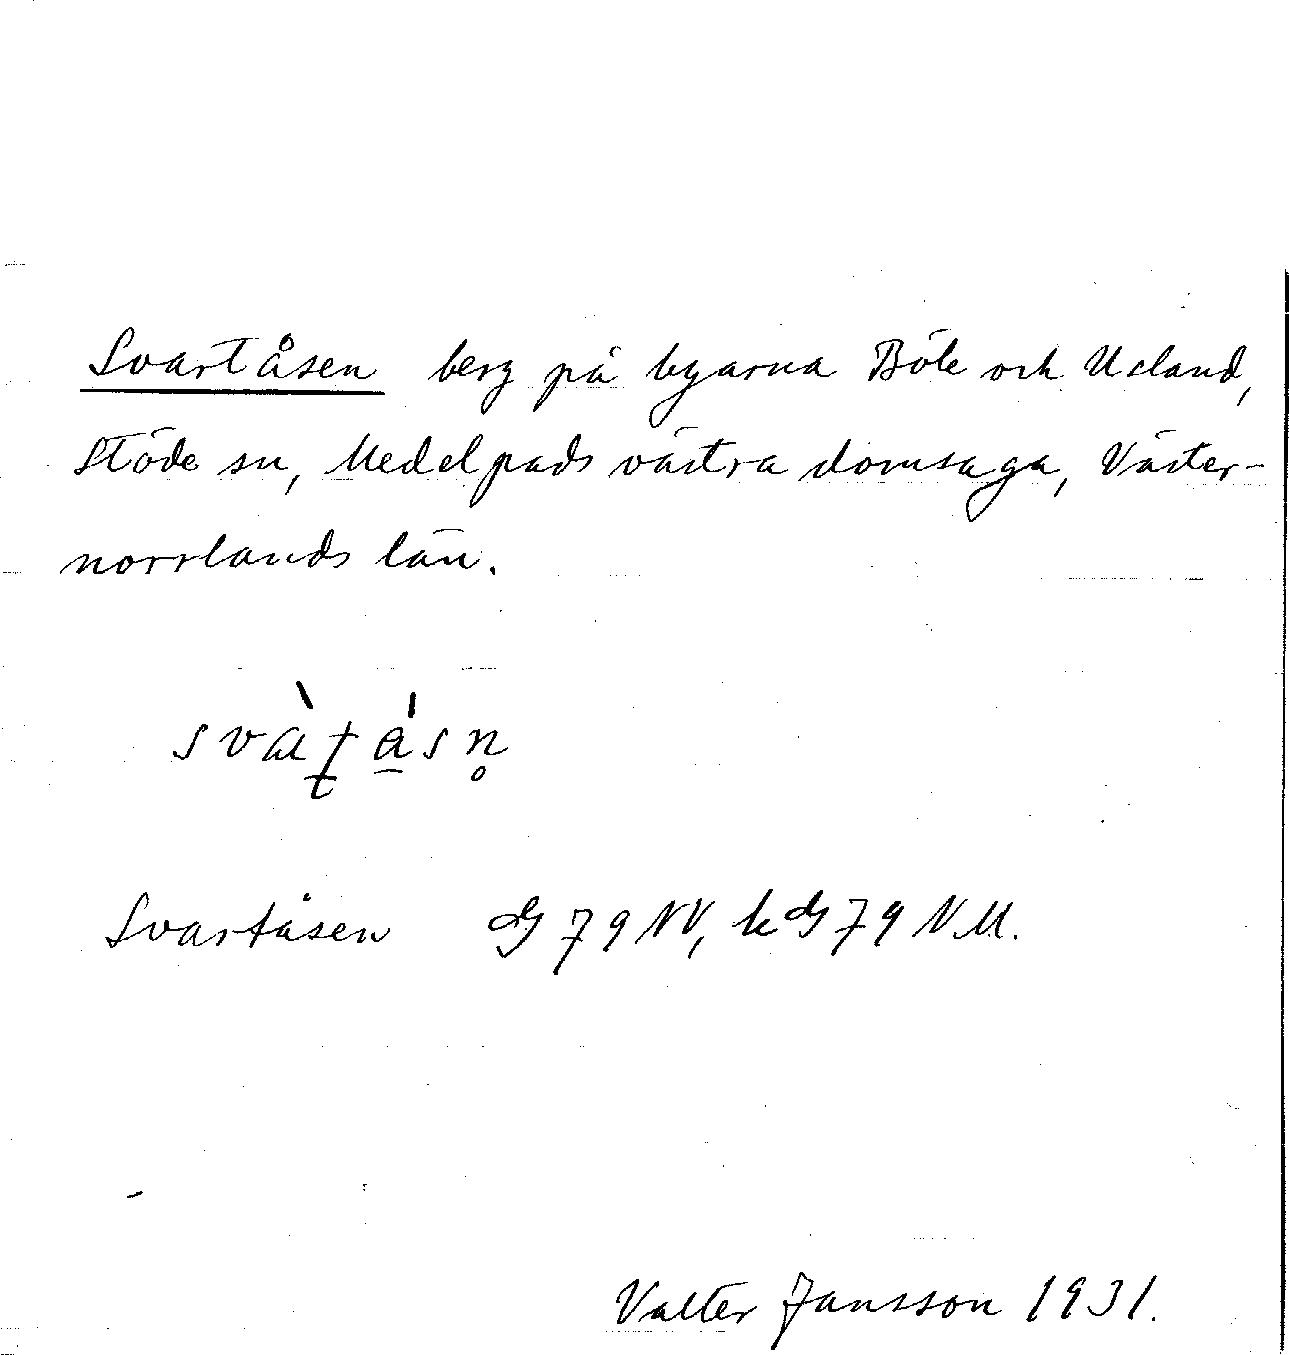 Svartåsen berg på byarna Böle och Usland,
Stöde sn, Medelpads västra domsaga, Väster-
norrlands län.
Svartåsen 79 NV, k 79 N.M.
Valter Jansson 1931.